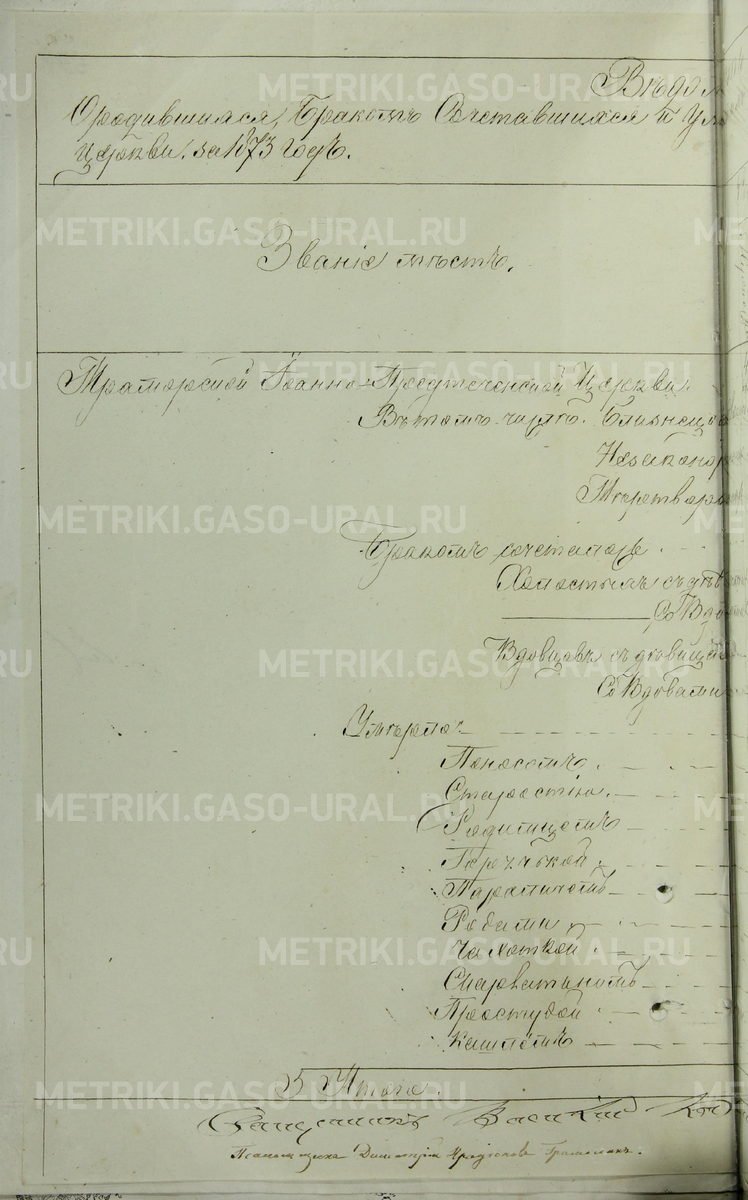 Вѣдом
О родившихся, Бракомъ Сочетавшихся и Ум
церкви, за 1873 годъ.
Званіе мѣстъ.
Мраморской Іоанно-Предтеченской Церкви.
Въ томъ числѣ. Близнецо
Незаконор
Мертворо
Бракомъ сочеталось
Холостыхъ съ дѣв
Со Вдо
Вдовцовъ съ дѣвицa
Со Вдовами
Умерло:
Поносомъ.
Старостію.
Родимцемъ
Горячкой
Параличемъ
Родами
Чахоткой
Скарлатиномъ
Простудой
Кашлемъ
Итого.
Священникъ Василий
Псаломщикъ Димитрій
METRIKI.GASO-URAL.RU